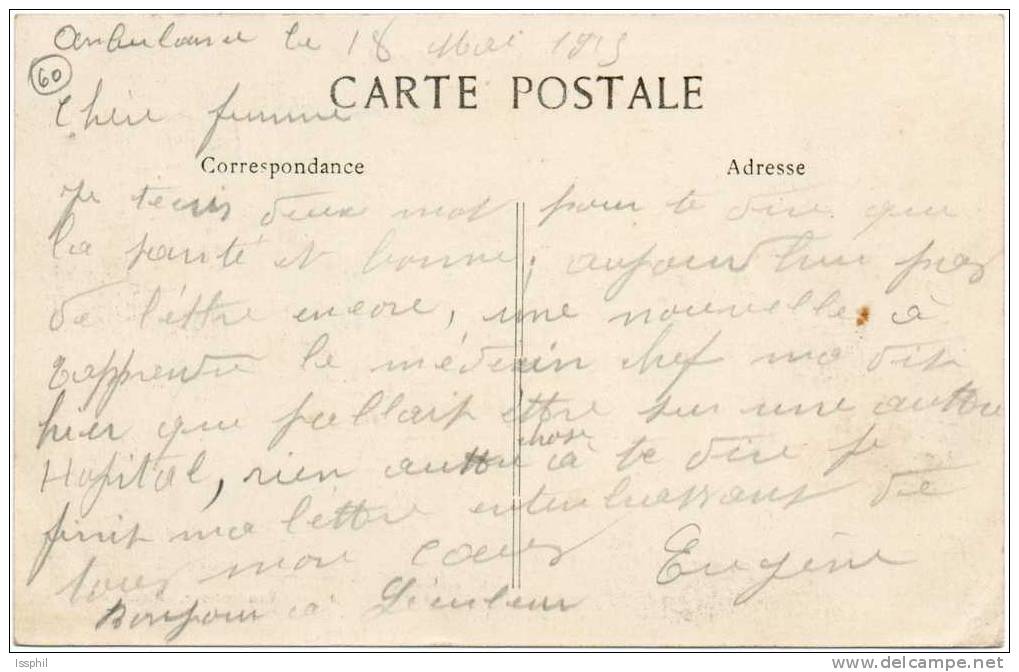 Ambulance le 18 Mai 1915
60
CARTE POSTALE
Chère femme
Correspondance
Adresse
Je tecris deux mot pour te dire que
la santé et bonne, aujourd'hui pas
de léttre encore, une nouvelle à
tapprendre le médecin chef ma dit
hier que jallait ettre sur une auttre
Hopital, rien auttre chose à te dire je
finit ma léttre entenbrassant de
tous mon cœur Eugène
Bonjour à
Issphil
delcampe.net